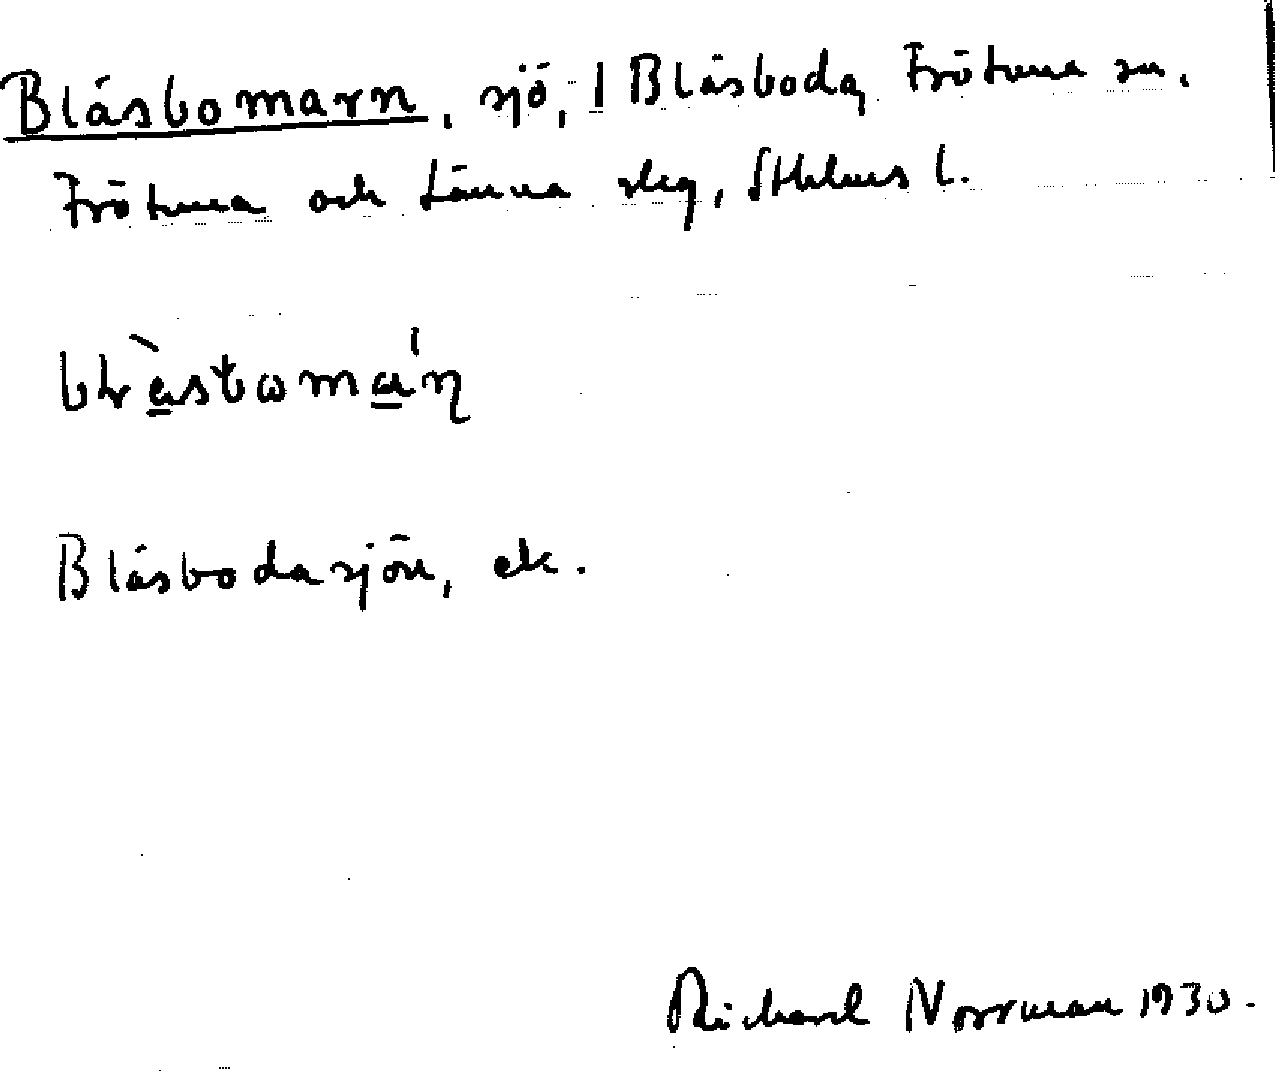 Blåsbomarn, sjö, l Blåsboda, Frötuna sn.
Frötuna och Länna slag, Sthlms l.
Blåsbodasjön, ek.
Richard Norrman 1930.